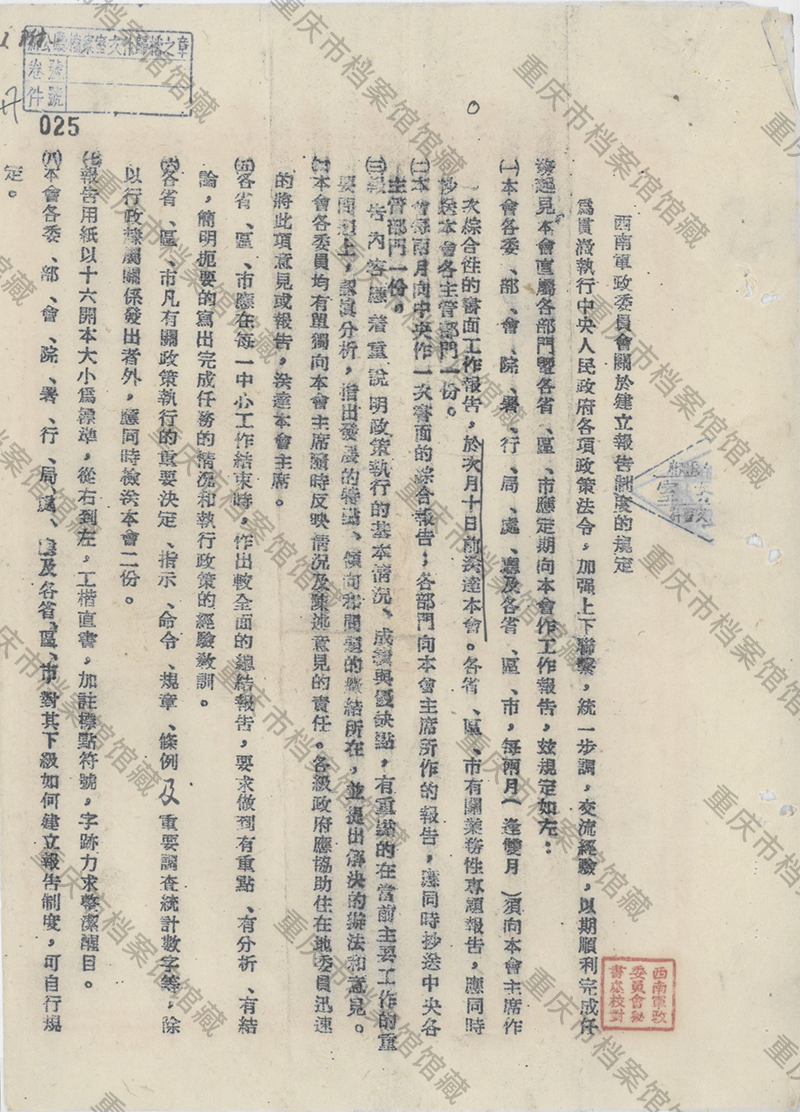 西南軍政委員會關於建立報告制度的規定
爲貫澈執行中央人民政府各項政策法令，加强上下聯繫，統一步調，交流經驗，以期順利完成任
務起見本會直屬各部門曁各省、區、市應定期向本會作工作報告，玆規定如左：
㈠本會各委、部、會、院、署、行、局、處、曁及各省、區、市，每兩月（逢雙月）須向本會主席作
一次綜合性的書面工作報告，於次月十日前送達本會。各省、區、市有關業務性專題報告，應同時
抄送本會各主管部門一份。
㈡本會每兩月向中央作一次書面的綜合報告；各部門向本會主席所作的報告，應同時抄送中央各
主管部門一份。
㈢報告內容應着重說明政策執行的基本情況、成績與優缺點，有重點的在當前主要工作的重
要問題上，認眞分析，指出發展的特點、傾向和問題的癥結所在，並提出解決的辦法和意見。
㈣本會各委員均有單獨向本會主席隨時反映情況及陳述意見的責任。各級政府應協助住在地委員迅速
的將此項意見或報告，送達本會主席。
㈤各省、區、市應在每一中心工作結束時，作出較全面的總結報告，要求做到有重點、有分析、有結
論，簡明扼要的寫出完成任務的情況和執行政策的經驗敎訓。
㈥各省、區、市凡有關政策執行的重要決定、指示、命令、規章、條例及重要調查統計數字等，除
以行政隸屬關係發出者外，應同時檢送本會二份。
㈦報告用紙以十六開本大小爲標準，從右到左，工楷直書，加註標點符號，字跡力求整潔醒目。
㈧本會各委、部、會、院、署、行、局、處、曁及各省、區、市對其下級如何建立報告制度，可自行規
定。
西南軍政
委員會秘
書處校對
辦公廳檔案室文件歸檔之章
卷號
件號
025
重庆市档案馆馆藏